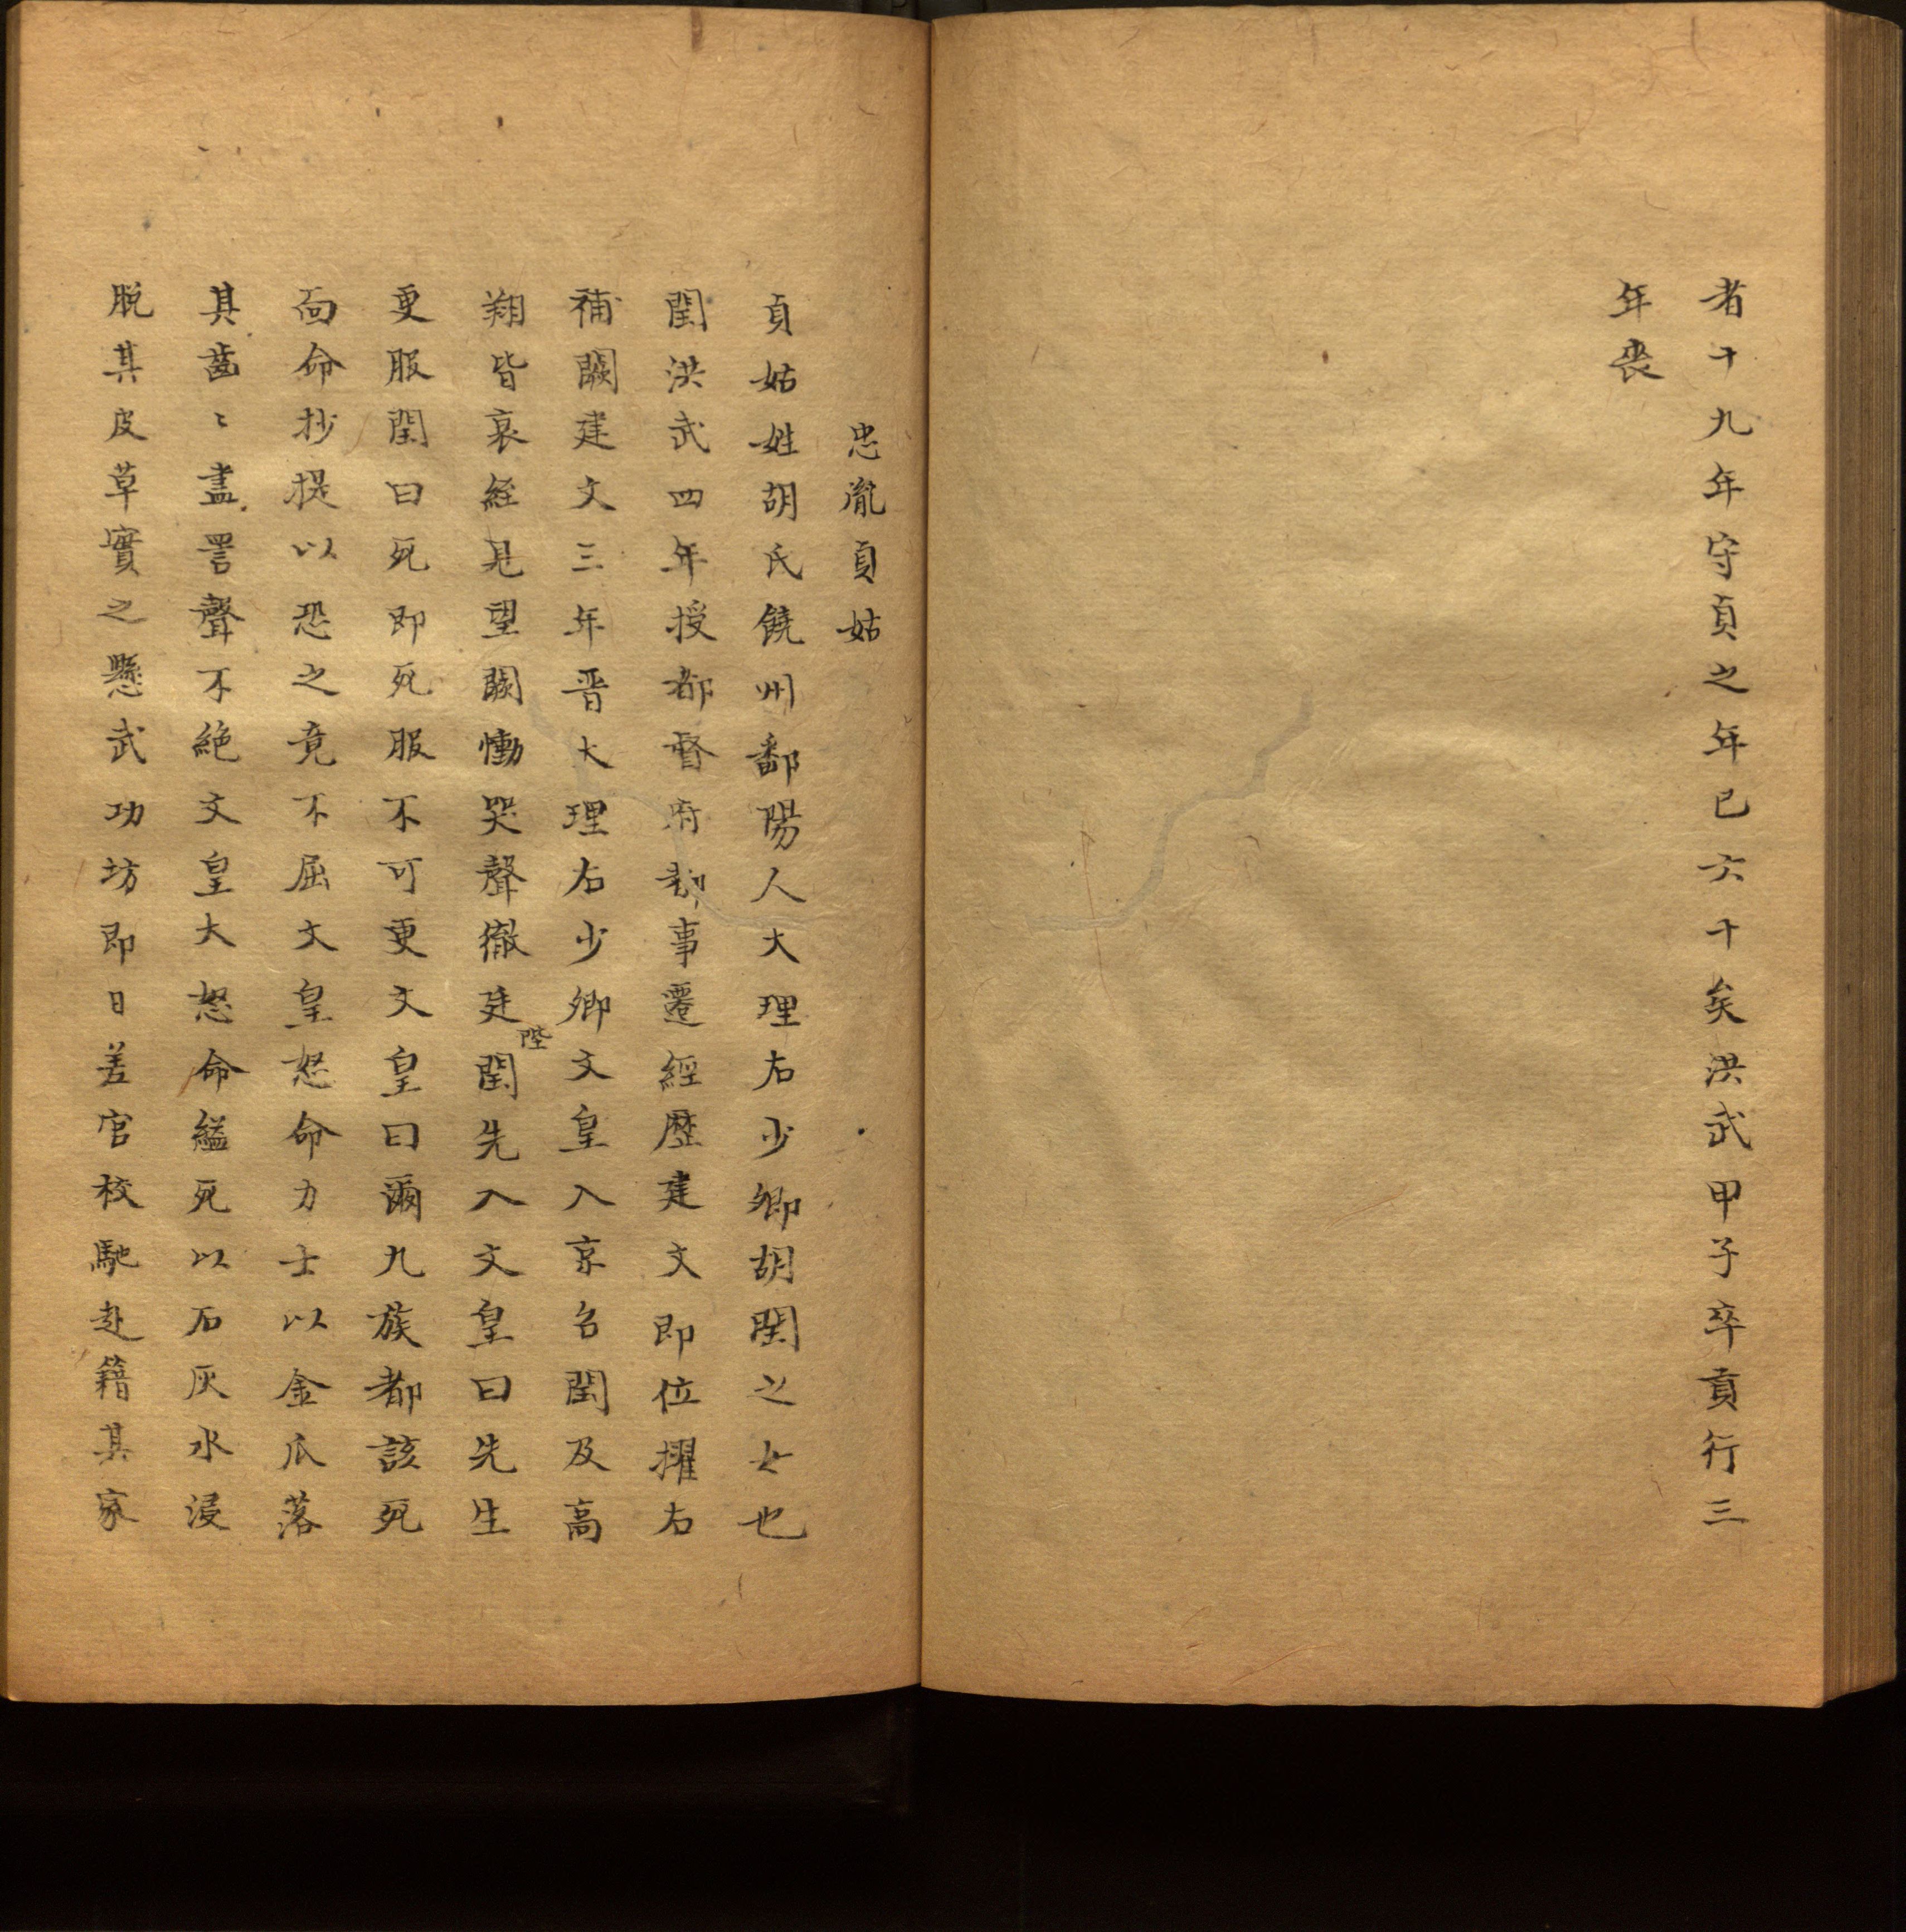 者十九年守貞之年已六十矣洪武甲子卒貢行三
年喪
忠胤貞姑
貞姑姓胡氏饒州鄱陽人大理右少卿胡閏之女也
閏洪武四年授都督府都事遷經歷建文即位擢右
補闕建文三年晋大理右少卿文皇入京召閏及高
翔皆衰絰見望闕慟哭聲徹廷陛閏先入文皇曰先生
更服閏曰死即死服不可更文皇曰爾九族都該死
面命抄提以恐之竟不屈文皇怒命力士以金瓜落
其齒〻盡詈聲不絕文皇大怒命縊死以石灰水浸
脫其皮草實之懸武功坊即日差官校馳赴籍其家